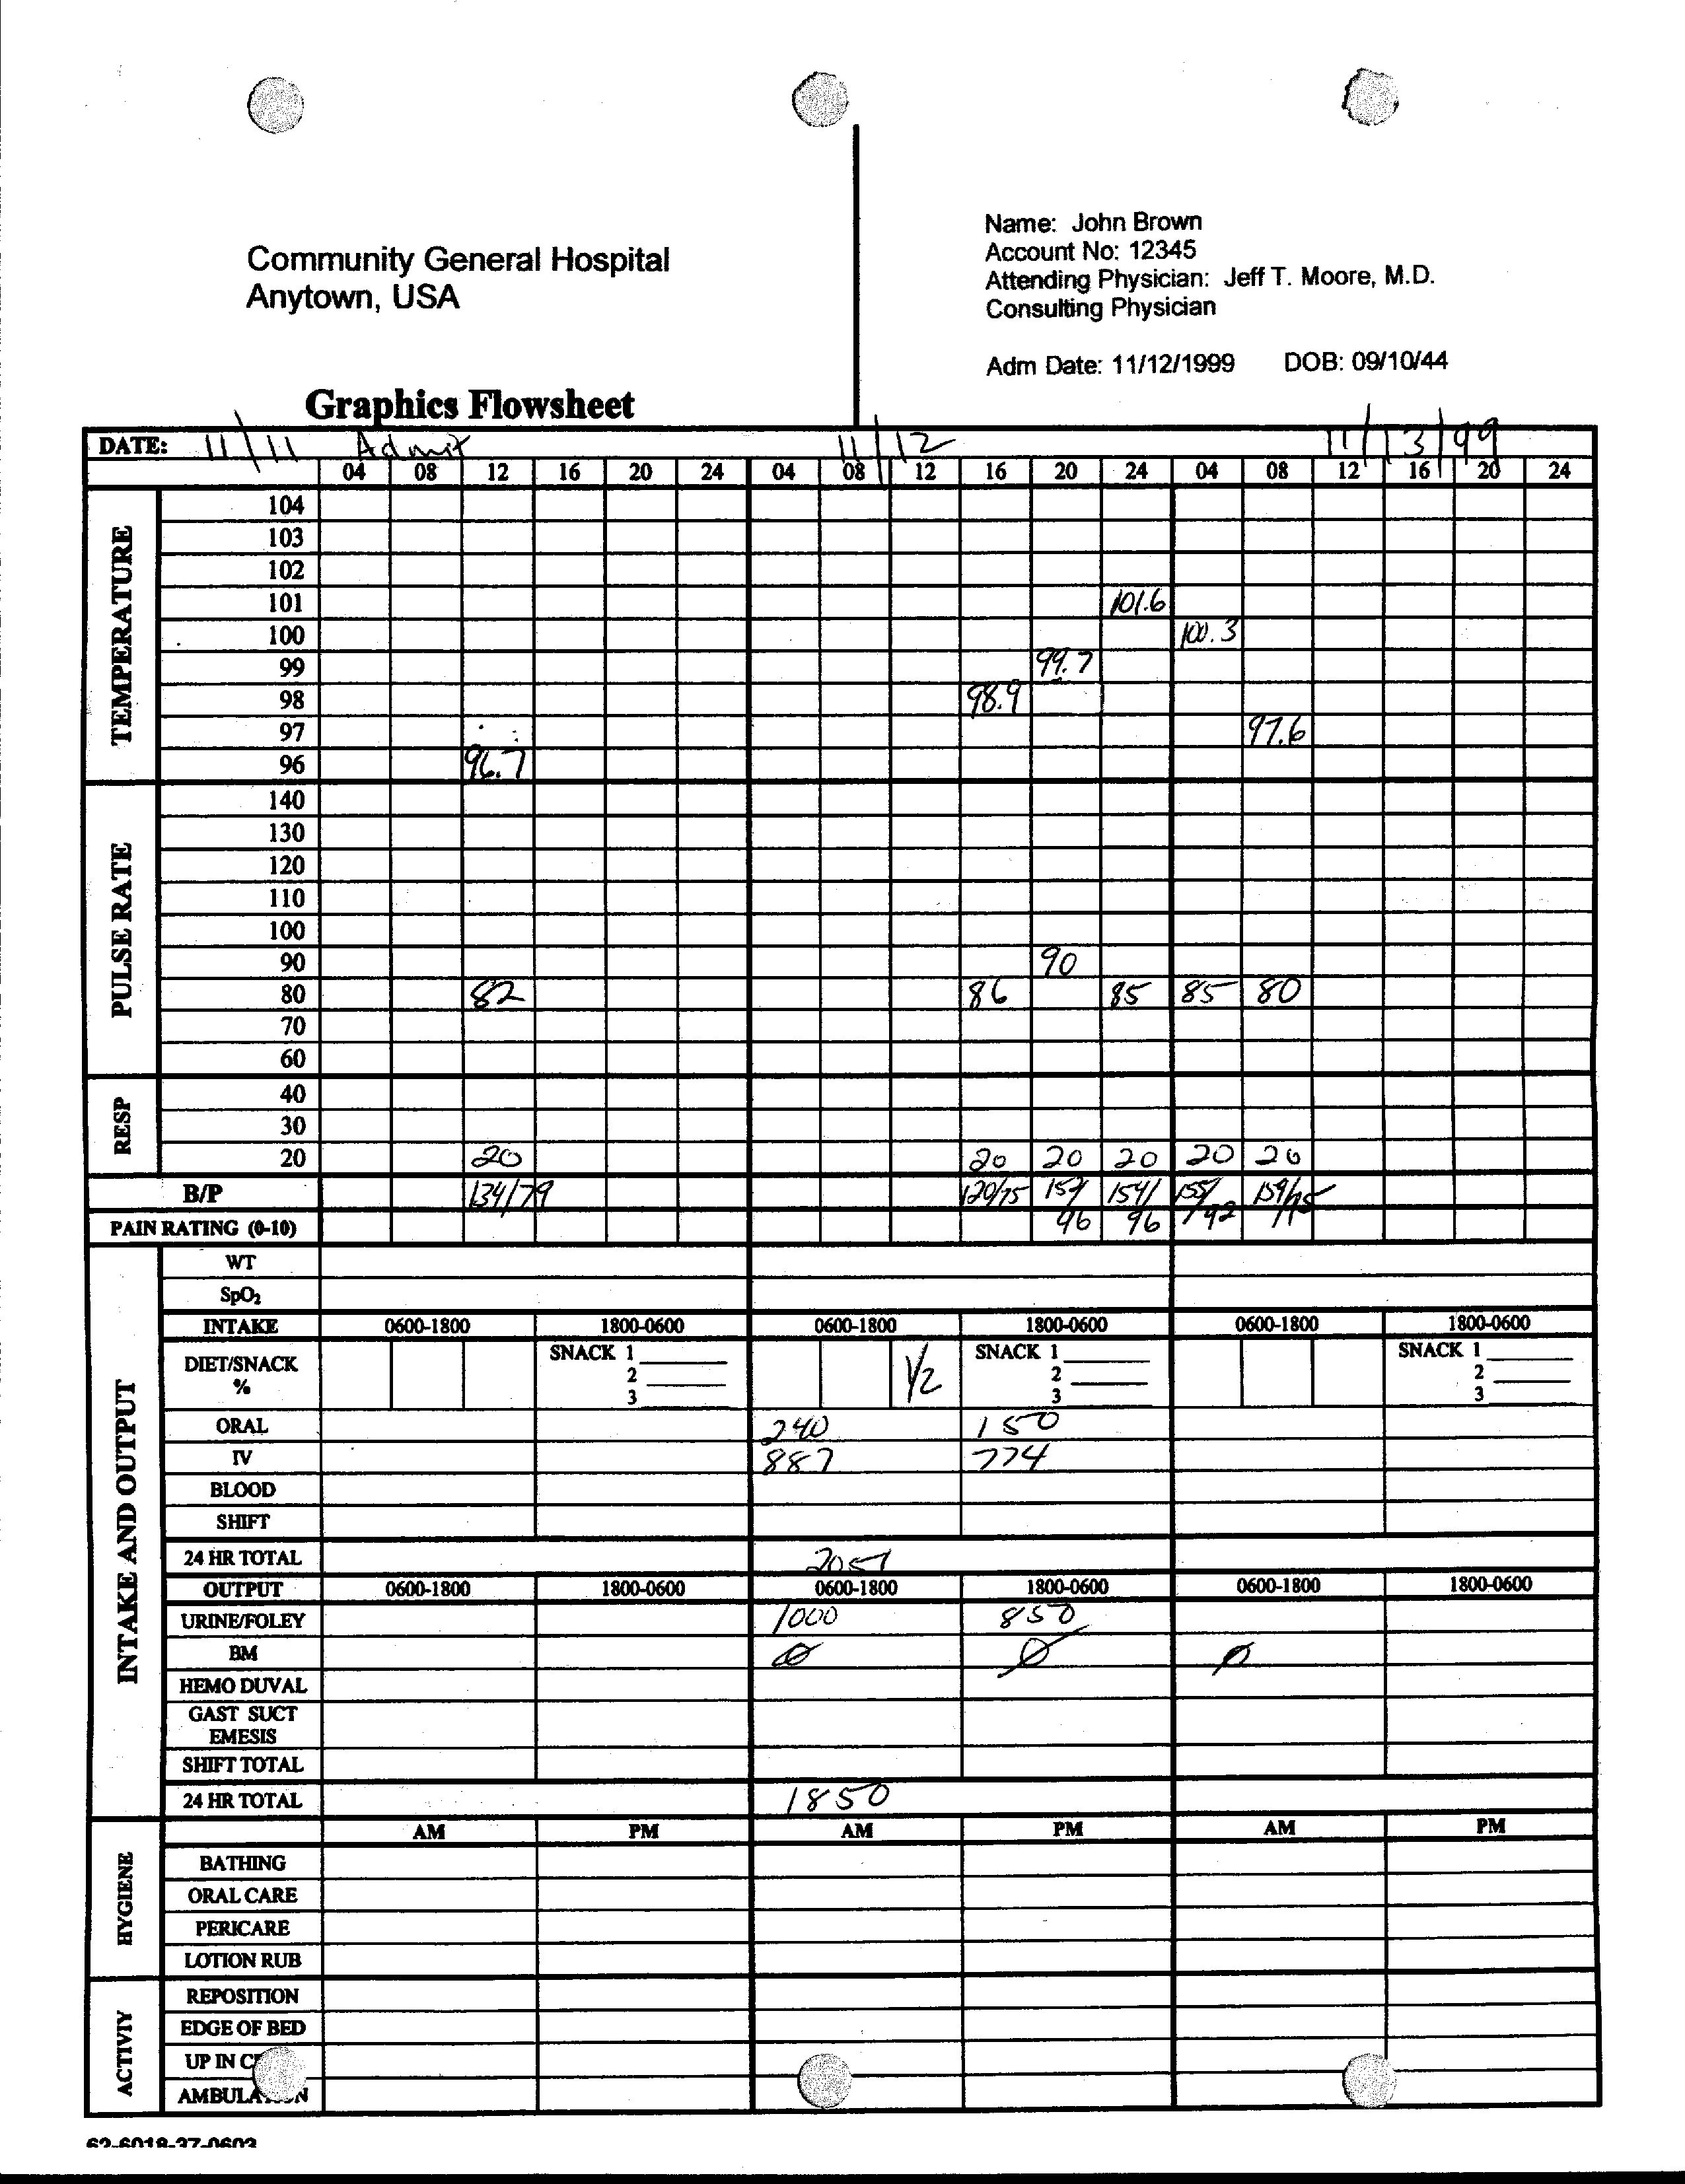 Community General Hospital
Anytown, USA
Name: John Brown
Account No: 12345
Attending Physician: Jeff T. Moore, M.D.
Consulting Physician
Adm Date: 11/12/1999 DOB: 09/10/44
Graphics Flowsheet
DATE: 11/11 Admit 11/12 11/13/99
04 08 12 16 20 24 04 08 12 16 20 24 04 08 12 16 20 24
TEMPERATURE
104
103
102
101 101.6
100 100.3
99 99.7
98 98.9
97 97.6
96 96.7
PULSE RATE
140
130
120
110
100
90 90
80 82 86 85 85 80
70
60
RESP
40
30
20 20 20 20 20 20 20
B/P 134/79 120/75 154/ 155/
PAIN RATING (0-10) 96 96 92
INTAKE AND OUTPUT
WT
SpO₂
INTAKE 0600-1800 1800-0600 0600-1800 1800-0600 0600-1800 1800-0600
DIET/SNACK % 1/2
SNACK 1 SNACK 1 SNACK 1
2 2 2
3 3 3
ORAL 240 150
IV 887 774
BLOOD
SHIFT
24 HR TOTAL
OUTPUT 0600-1800 1800-0600 0600-1800 1800-0600 0600-1800 1800-0600
URINE/FOLEY 1000 850
BM Ø Ø Ø
HEMO DUVAL
GAST SUCT
EMESIS
SHIFT TOTAL
24 HR TOTAL 1850
HYGIENE
AM PM AM PM AM PM
BATHING
ORAL CARE
PERICARE
LOTION RUB
ACTIVIY
REPOSITION
EDGE OF BED
UP IN
62-6018-37-0603